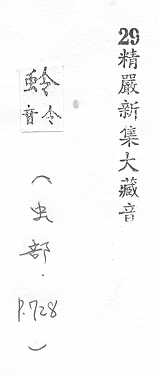 29精嚴新集大藏音
蛉音令
(虫部.P.728)